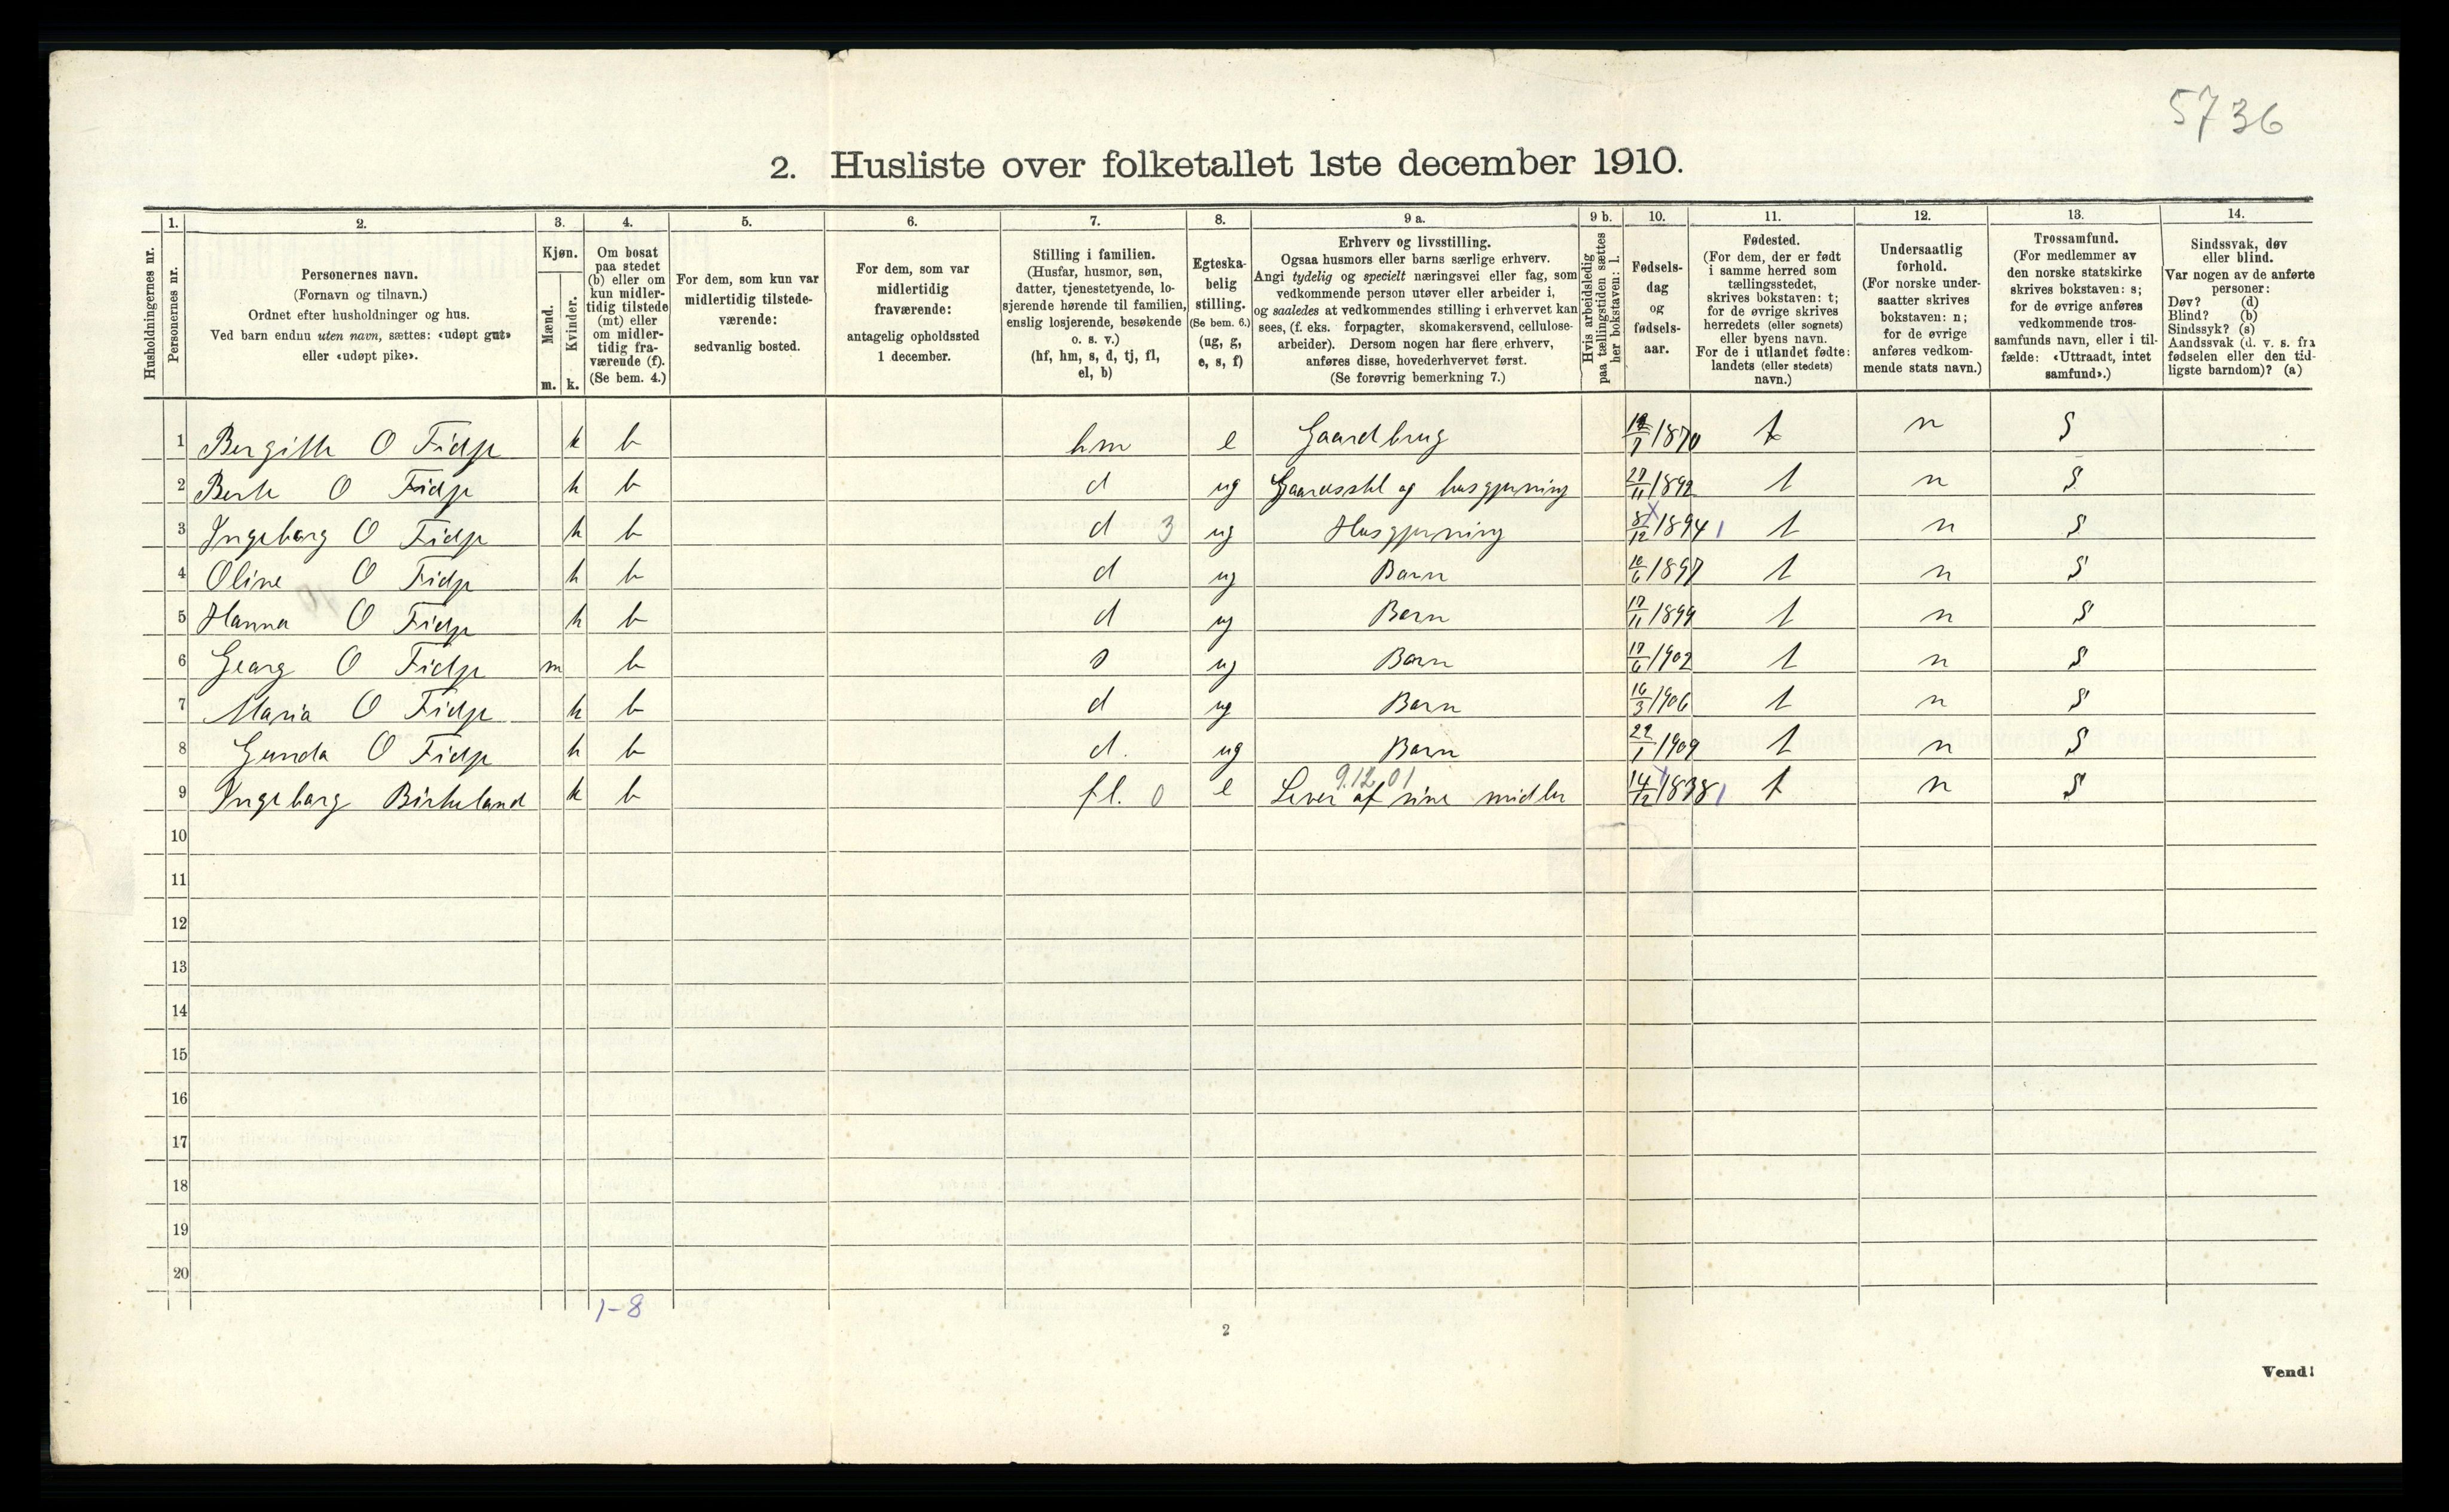 5736
2. Husliste over folketallet 1ste december 1910.
Husholdningernes nr.
1. Personernes nr.
2.
Personernes navn.
(Fornavn og tilnavn.)
Ordnet efter husholdninger og hus.
Ved barn endnu uten navn, sættes: «udøpt gut»
eller «udøpt pike».
3.
Kjøn.
Mænd.
Kvinder.
m. k.
4.
Om bosat
paa stedet
(b) eller om
kun midler-
tidig tilstede
(mt) eller
om midler-
tidig fra-
værende (f).
(Se bem. 4.)
5.
For dem, som kun var
midlertidig tilstede-
værende:
sedvanlig bosted.
6.
For dem, som var
midlertidig
fraværende:
antagelig opholdssted
1 december.
7.
Stilling i familien.
(Husfar, husmor, søn,
datter, tjenestetyende, lo-
sjerende hørende til familien,
enslig losjerende, besøkende
o. s. v.)
(hf, hm, s, d, tj, fl,
el, b)
8.
Egteska-
belig
stilling.
(Se bem. 6.)
(ug, g,
e, s, f)
9 a.
Erhverv og livsstilling.
Ogsaa husmors eller barns særlige erhverv.
Angi tydelig og specielt næringsvei eller fag, som
vedkommende person utøver eller arbeider i,
og saaledes at vedkommendes stilling i erhvervet kan
sees, (f. eks. forpagter, skomakersvend, cellulose-
arbeider). Dersom nogen har flere erhverv,
anføres disse, hovederhvervet først.
(Se forøvrig bemerkning 7.)
9 b.
Hvis arbeidsledig
paa tællingstiden sættes
her bokstaven: l.
10.
Fødsels-
dag
og
fødsels-
aar.
11.
Fødested.
(For dem, der er født
i samme herred som
tællingsstedet,
skrives bokstaven: t;
for de øvrige skrives
herredets (eller sognets)
eller byens navn.
For de i utlandet fødte:
landets (eller stedets)
navn.)
12.
Undersaatlig
forhold.
(For norske under-
saatter skrives
bokstaven: n;
for de øvrige
anføres vedkom-
mende stats navn.)
13.
Trossamfund.
(For medlemmer av
den norske statskirke
skrives bokstaven: s;
for de øvrige anføres
vedkommende tros-
samfunds navn, eller i til-
fælde: «Uttraadt, intet
samfund».)
14.
Sindssvak, døv
eller blind.
Var nogen av de anførte
personer:
Døv? (d)
Blind? (b)
Sindssyk? (s)
Aandssvak (d. v. s. fra
fødselen eller den tid-
ligste barndom)? (a)
1 O Fidje k b hm e Gaardbrug 1870 t n S
2 O Fidje k b d ug og husgjerning 1892 t n S
3 Ingeborg O Fidje k b d 3 ug Husgjerning 12 1894 t n S
4 Oline O Fidje k b d ug Barn 6 1897 t n S
5 Hanna O Fidje k b d ug Barn 11 1899 t n S
6 Georg O Fidje m b s ug Barn 6 1902 t n S
7 Maria O Fidje k b d ug Barn 16/3 1906 t n S
8 Gunda O Fidje k b d. ug Barn 22/1 1909 t n S
9.12.01
9 Ingeborg Birkeland k b fl. 0 e Lever af sine midler 14/12 1838 t n S
10
11
12
13
14
15
16
17
18
19
20
1-8
2
Vend!